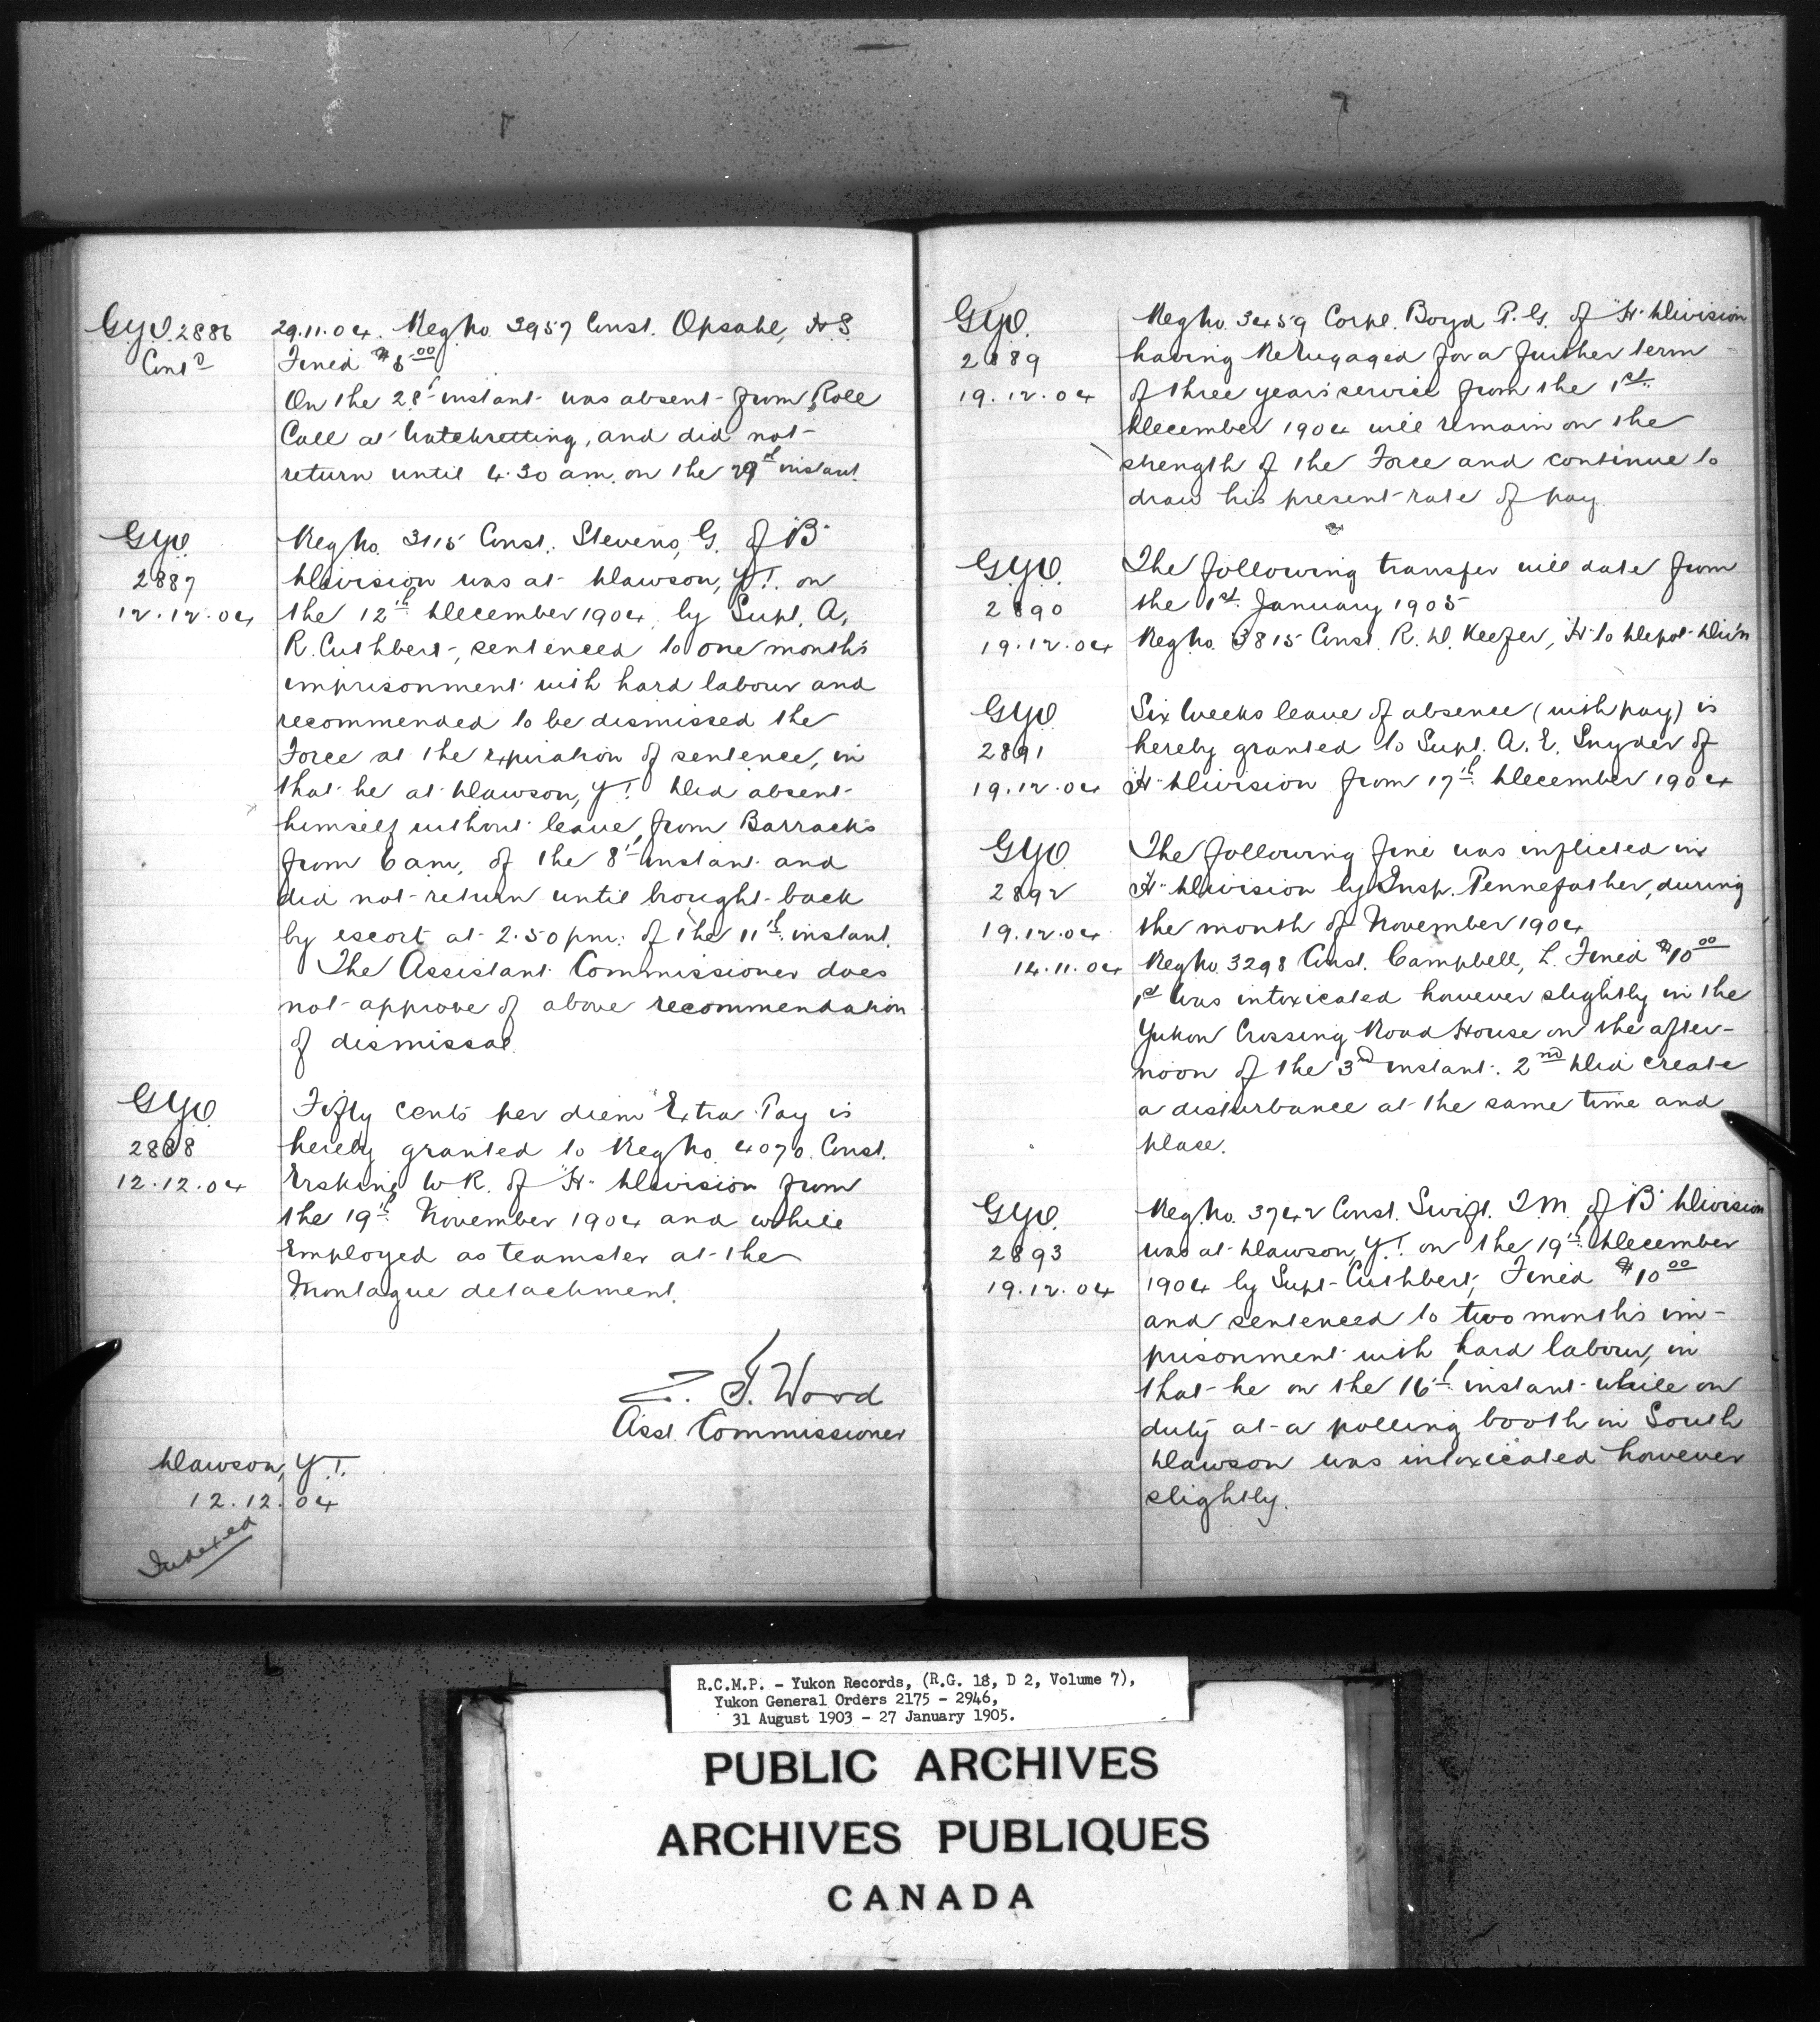 GYO 2886 29.11.04. Reg No. 3957 Const. Opsahl, H S
Contd Fined $5.00
On the 28th instant was absent from Roll
Call at Watchsetting, and did not
return until 4.30 am. on the 29th instant.
GYO Reg No. 3115 Const. Stevens, G. of "B"
2887 Division was at Dawson, Y.T. on
12.12.04 the 12th December 1904, by Supt. A.
R. Cuthbert, sentenced to one month's
imprisonment with hard labour and
recommended to be dismissed the
Force at the expiration of sentence, in
that he at Dawson, Y.T. Did absent
himself without leave, from Barracks
from 6 am, of the 8th instant and
did not return until brought back
by escort at 2.50 pm. of the 11th instant.
The Assistant Commissioner does
not approve of above recommendation
of dismissal.
GYO Fifty cents per diem Extra Pay is
2888 hereby granted to Reg No. 4070 Const.
12.12.04 Erskine, W R. of "H" Division from
the 19th November 1904 and while
Employed as teamster at the
Montague detachment.
Z. T. Wood
Asst. Commissioner
Dawson, Y.T.
12.12.04
Indexed
GYO. Reg No. 3459 Corpl. Boyd P. G. of "H" Division
2889 having Reengaged for a further term
19.12.04 of three years service from the 1st
December 1904 will remain on the
strength of the Force and continue to
draw his present rate of pay.
GYO. The following transfer will date from
2890 the 1st January 1905
19.12.04 Reg No. 3815 Const. R. D. Keefer, "H" to Depot Div'n
GYO Six Weeks leave of absence (with pay) is
2891 hereby granted to Supt. A. E. Snyder of
19.12.04 "H" Division from 17th December 1904
GYO The following fine was inflicted in
2892 "H" Division by Insp. Pennefather, during
19.12.04 the month of November 1904
14.11.04 Reg No. 3298 Const. Campbell, L. Fined $10.00
1st Was intoxicated however slightly in the
Yukon Crossing Road House on the after-
noon of the 3rd instant. 2nd Did create
a disturbance at the same time and
place.
GYO. Reg. No. 3742 Const. Swift. T.M. of "B" Division
2893 was at Dawson, Y.T. on the 19th December
19.12.04 1904 by Supt. Cuthbert, Fined $10.00
and sentenced to two months im-
prisonment with hard labour, in
that he on the 16th instant while on
duty at a polling booth in South
Dawson was intoxicated however
slightly.
R.C.M.P. - Yukon Records, (R.G. 18, D 2, Volume 7),
Yukon General Orders 2175 - 2946,
31 August 1903 - 27 January 1905.
PUBLIC ARCHIVES
ARCHIVES PUBLIQUES
CANADA